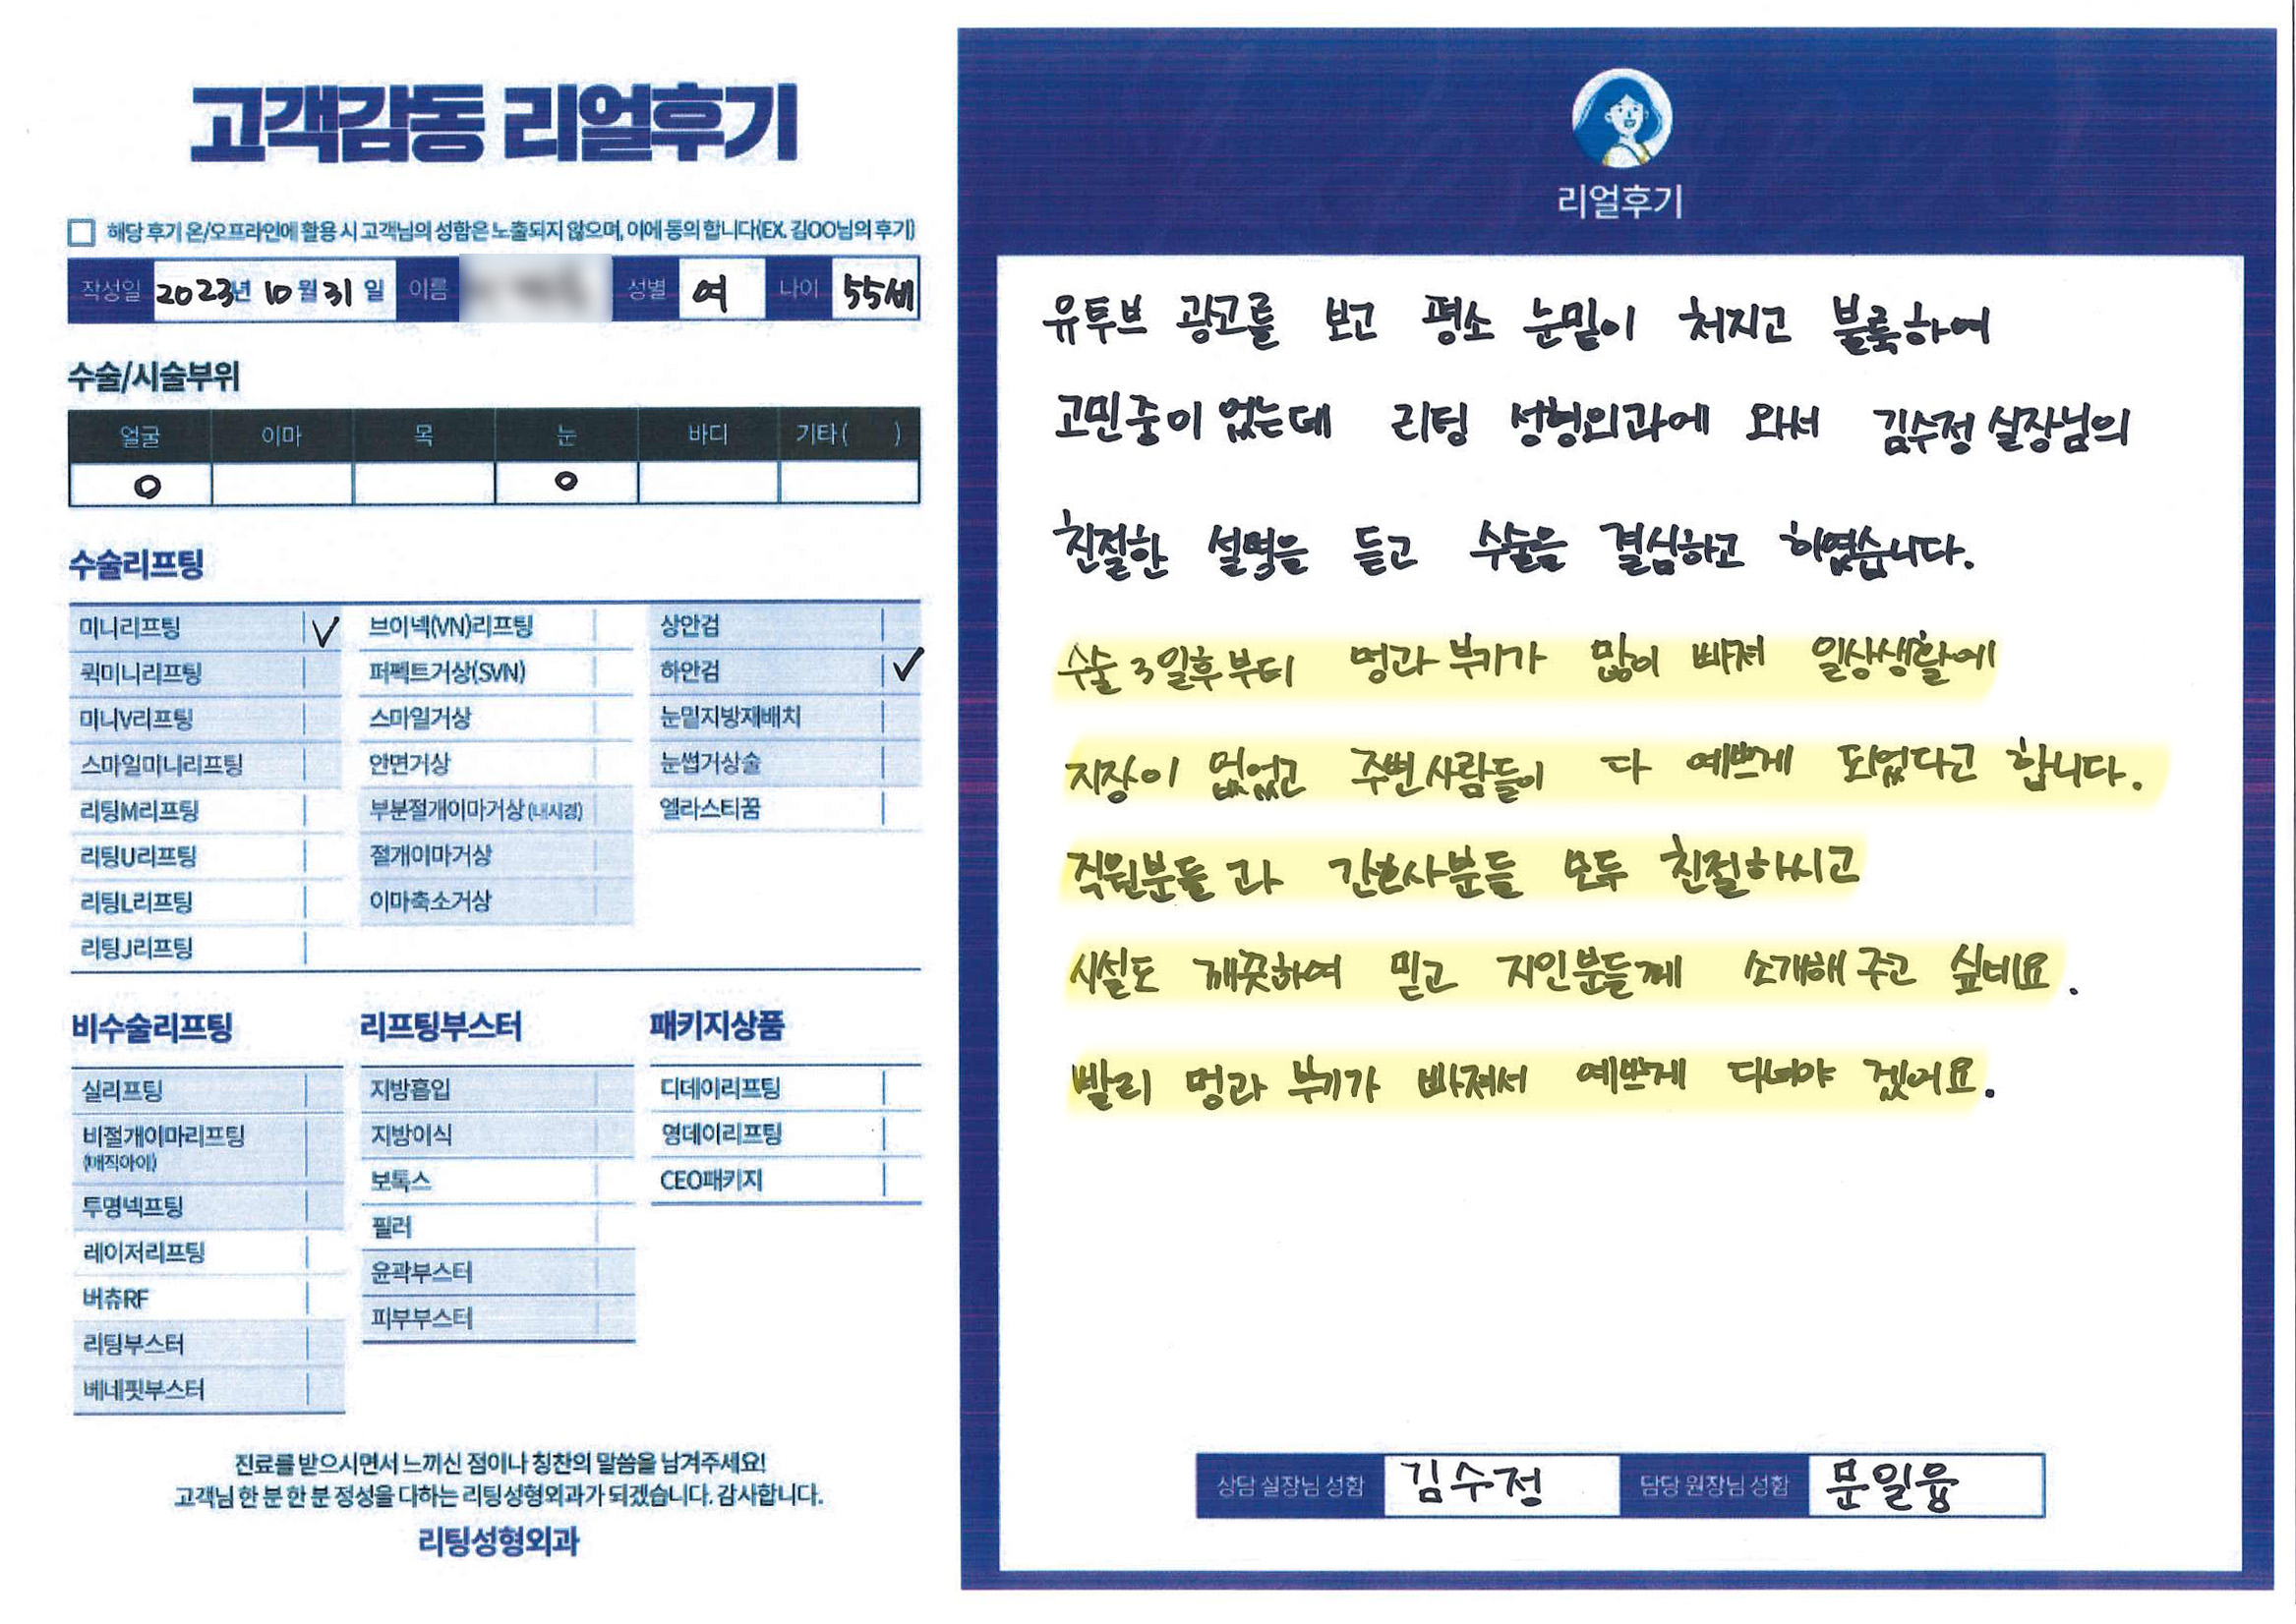 고객감동 리얼후기
해당 후기 온/오프라인에 활용 시 고객님의 성함은 노출되지 않으며, 이에 동의 합니다(EX. 김OO님의 후기)
작성일 2023년 10월 31일 이름 성별 여 나이 55세
수술/시술부위
얼굴 이마 목 눈 바디 기타( )
O O
수술리프팅
미니리프팅 ✓ 브이넥(VN)리프팅 상안검
퀵미니리프팅 퍼펙트거상(SVN) 하안검 ✓
미니V리프팅 스마일거상 눈밑지방재배치
스마일미니리프팅 안면거상 눈썹거상술
리팅M리프팅 부분절개이마거상(내시경) 엘라스티꿈
리팅U리프팅 절개이마거상
리팅L리프팅 이마축소거상
리팅J리프팅
비수술리프팅 리프팅부스터 패키지상품
실리프팅 지방흡입 디데이리프팅
비절개이마리프팅 지방이식 영데이리프팅
(매직아이)
투명넥프팅 보톡스 CEO패키지
레이저리프팅 필러
버츄RF 윤곽부스터
리팅부스터 피부부스터
베네핏부스터
진료를 받으시면서 느끼신 점이나 칭찬의 말씀을 남겨주세요!
고객님 한 분 한 분 정성을 다하는 리팅성형외과가 되겠습니다. 감사합니다.
리팅성형외과
리얼후기
유투브 광고를 보고 평소 눈밑이 처지고 불룩하여
고민중이 었는데 리팅 성형외과에 와서 김수정 실장님의
친절한 설명을 듣고 수술을 결심하고 하였습니다.
수술 3일후부터 멍과 부기가 많이 빠져 일상생활에
지장이 없었고 주변사람들이 다 예쁘게 되었다고 합니다.
직원분들과 간호사분들 모두 친절하시고
시설도 깨끗하여 믿고 지인분들께 소개해 주고 싶네요.
빨리 멍과 부기가 빠져서 예쁘게 다녀야 겠어요.
상담 실장님 성함 김수정 담당 원장님 성함 문일융